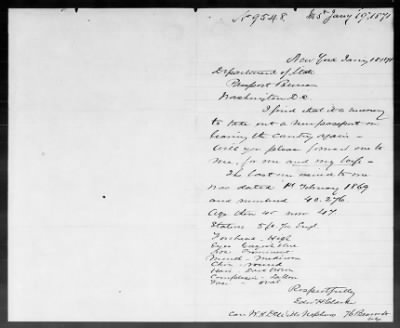 No 9548. Jany 19. 1871
New York Jany 18 1871
Department of State
Passport Bureau
Washington D.C.
I find that it is necessary
to take out a new passport on
leaving the country again -
Will you please forward one to
me, for me and my wife -
The last one issued to me
was dated 1st February 1869
and numbered 40.276.
Age then 45 now 47
Stature 5 ft 7 Engl
Forehead - High
Eyes
Nose Prominent
Mouth - Medium
Chin - round
Hair - Dark Brown
Complexion -
Face - oval
Respectfully
Edw H Clark
Care W. H. &